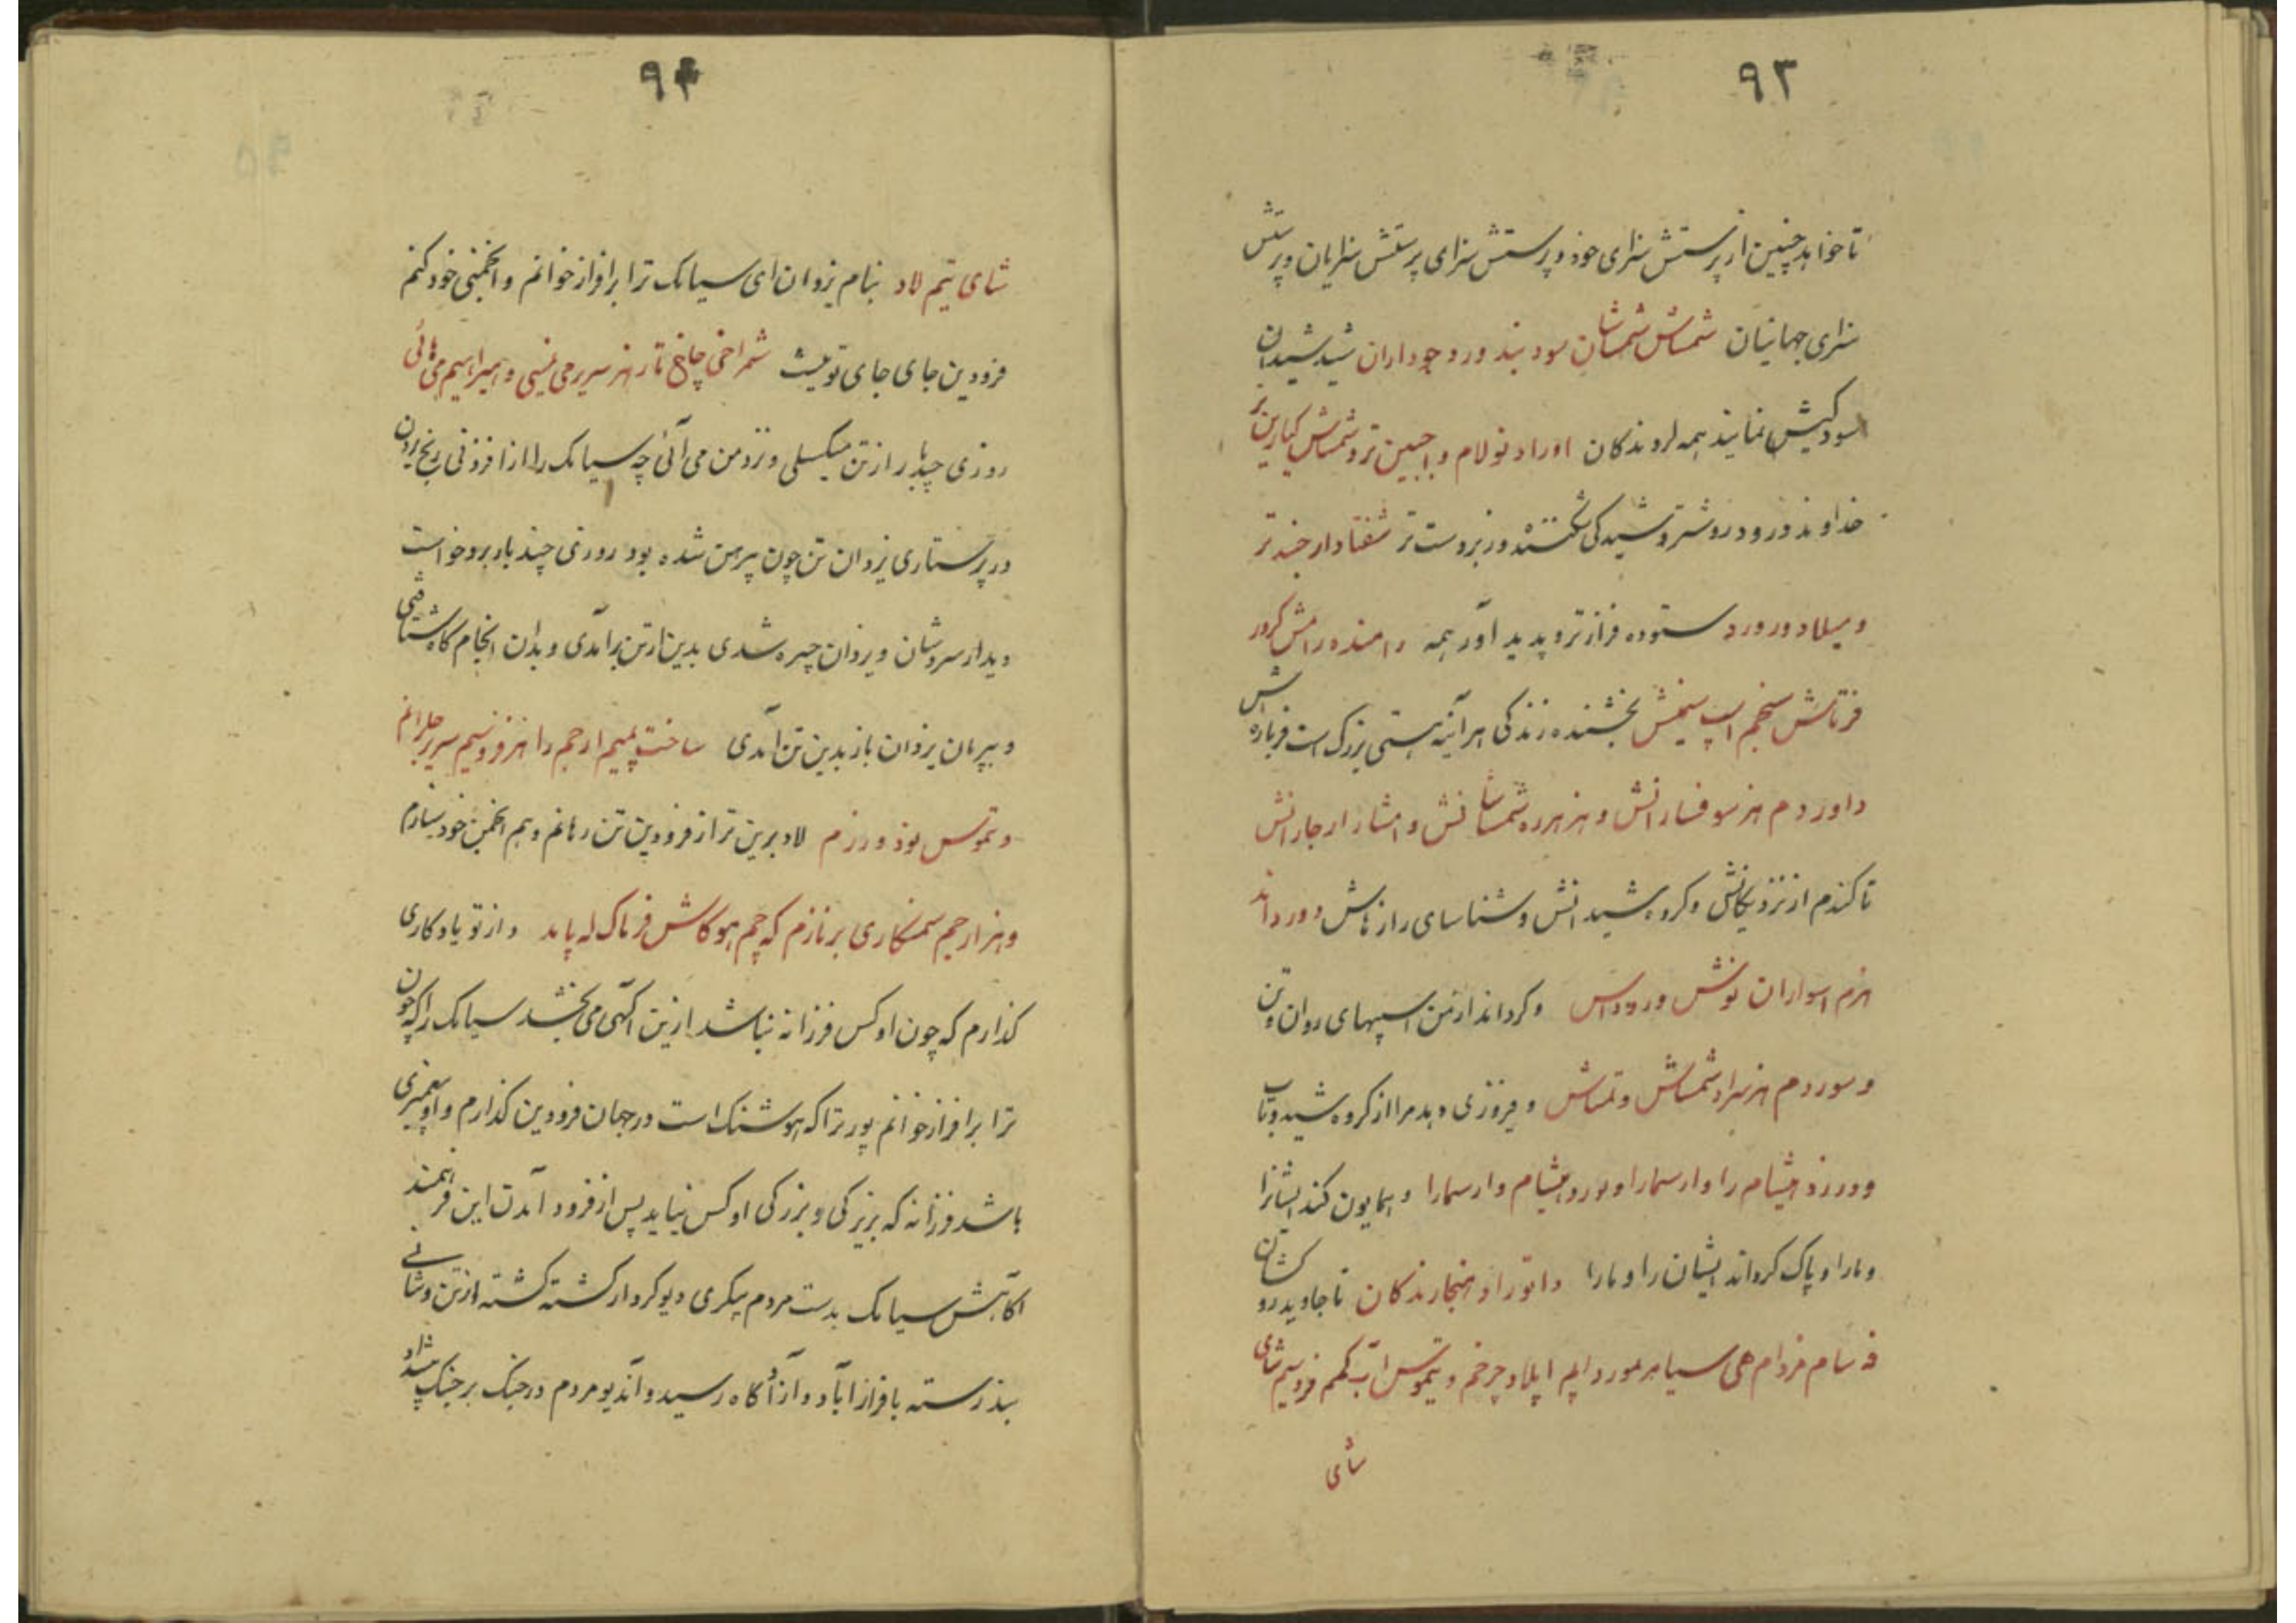 ۹۳
تا خواهد چنین از پرستش سزای خود و پرستش سزای پرستش سزایان و پرستش
سزای جهانیان شماش شماشان سود بند ورد جوداران شید شیدان
سود کیش نمایند همه اروندکان اوراد نولام و اجبین تر و شماش کبارین تر
خداوند درود روشنتر و شید کی شکننده و زبردست تر شفتا دار جند تر
و میلاد ورورد ستوده فرازتر و پدید آور همه رامنده رامش کرور
فرتاش سنجم اسپ سیمش بخشنده زندکی هر آئینه هستی بزرک است فرباره اش
داوردم هنر سو فسارانش و هنر هرده شماشانش و امشازار جارانش
تا کندم از نزدیکانش و کروه شیدانش و شناسای رازهاش و ورداند
هزم اسواران نوش وروداس و کرداند از من اسپهای روان و تن
و سوردم هنر سراد شماش و تماش و فروزی دهد مرا از کروه شید و تاب
وورزد هیشام را و ارسمارا و نورد هیشام و ارسمارا و همایون کند ایشانرا
و مارا و پاک کرداند ایشان را و مارا داتورا و هنجارندکان تا جاوید رو کشان
فه شام مزدام هی سیامر لمورد ایم ایلاد چرخم و تیموس اب کمم فروسیم شای
شای
۹۴
شای تیم لاد بنام یزدان ای سیامک ترا برافراز خوانم و انجمنی خود کنم
فرودین جای جای تو نیست شمراخی چاخ تار هنر سریر می نیسی و امیرا سیم می هائی
روزی چند بار از تن میکسلی و نزد من می آئی چه سیامک را از افزونی رنج بردن
در پرستاری یزدان تن چون پیرهن شده بود روزی چند بار بدو خواست
دیدار سروشان و یزدان چیره شدی بدین از تن برآمدی و بدان انجام کاه شتافتی
و بپرمان یزدان باز بدین تن آمدی ساخت پمیم ارجم را هنر فروسیم سریر جلرانم
و تموس نود ورزم لاد برین ترا از فرودین تن رهانم و هم انجمن خود سازم
و هنر ارجم سمنکاری برنازم که چم هوکاش فرماک له پاید و از تو یادکاری
کذارم که چون او کس فرزانه نباشد ازین آکهی می بخشد سیامک را که چون
ترا برافراز خوانم پور ترا که هوشنک است در جهان فرودین کذارم و او پیغمبری
باشد فرزانه که بزیرکی و بزرکی او کس نیاید پس از فرود آمدن این فرهمند
آکاهش سیامک بدست مردم پیکری دیو کردار کشته کشته از تن وشانی
بند رسته با فراز آباد و از آن آکاه رسید و آندیو مردم در جنک بر جنک پیشداد